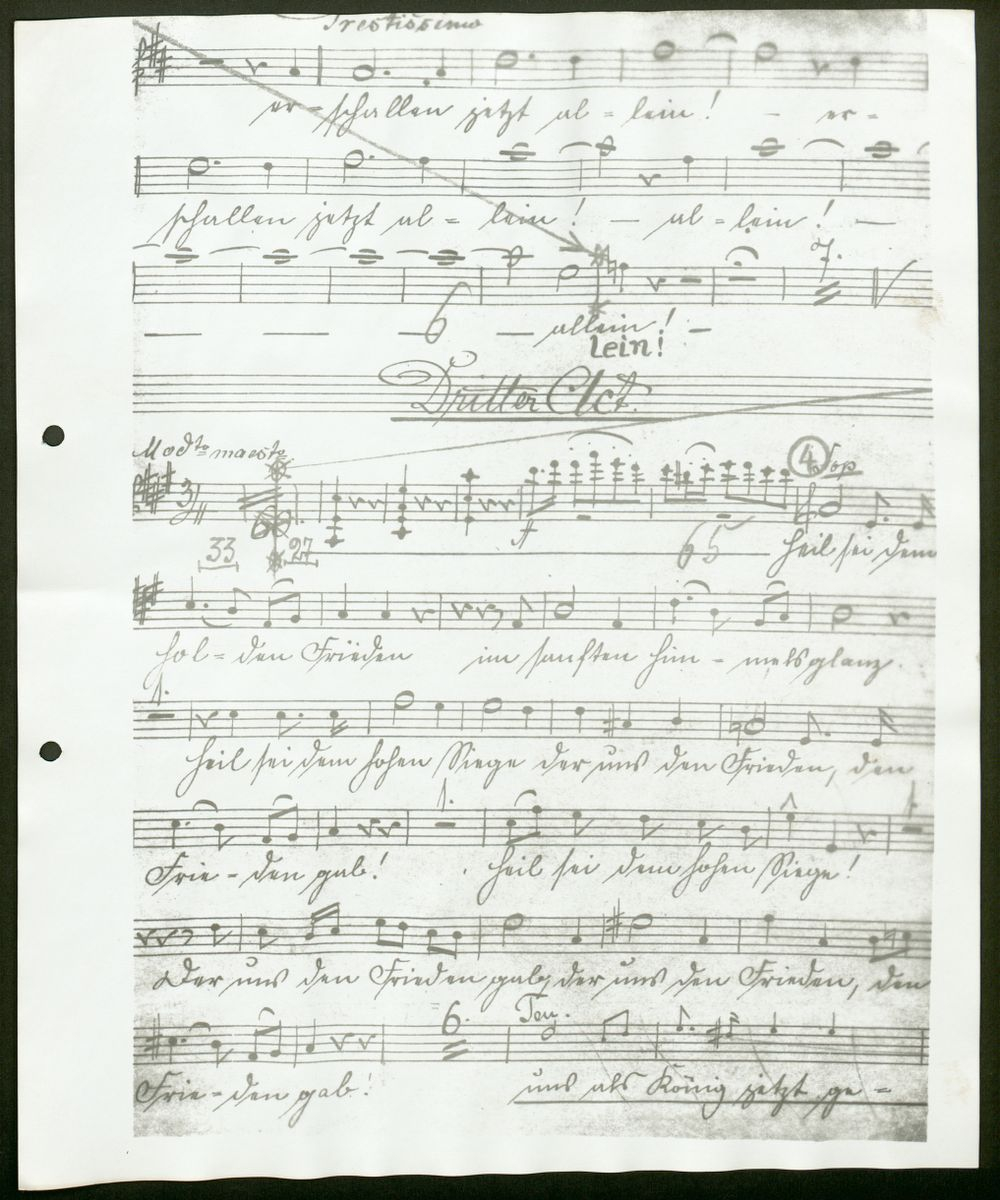 Prestissimo
er-schallen jetzt al-lein! - er-
schallen jetzt al-lein! - al-lein! -
7.
6 - allein! -
lein!
Dritter Act.
Modto maesto
4 Sop
33 27 f 65 Heil sei dem
hol-den Frieden im sanften Him-melsglanz.
1.
Heil sei dem hohen Siege der uns den Frieden, den
1. 1.
Frie-den gab! Heil sei dem hohen Siege!
Der uns den Frieden gab, der uns den Frieden, den
6. Ten.
Frie-den gab! uns als König jetzt ge-